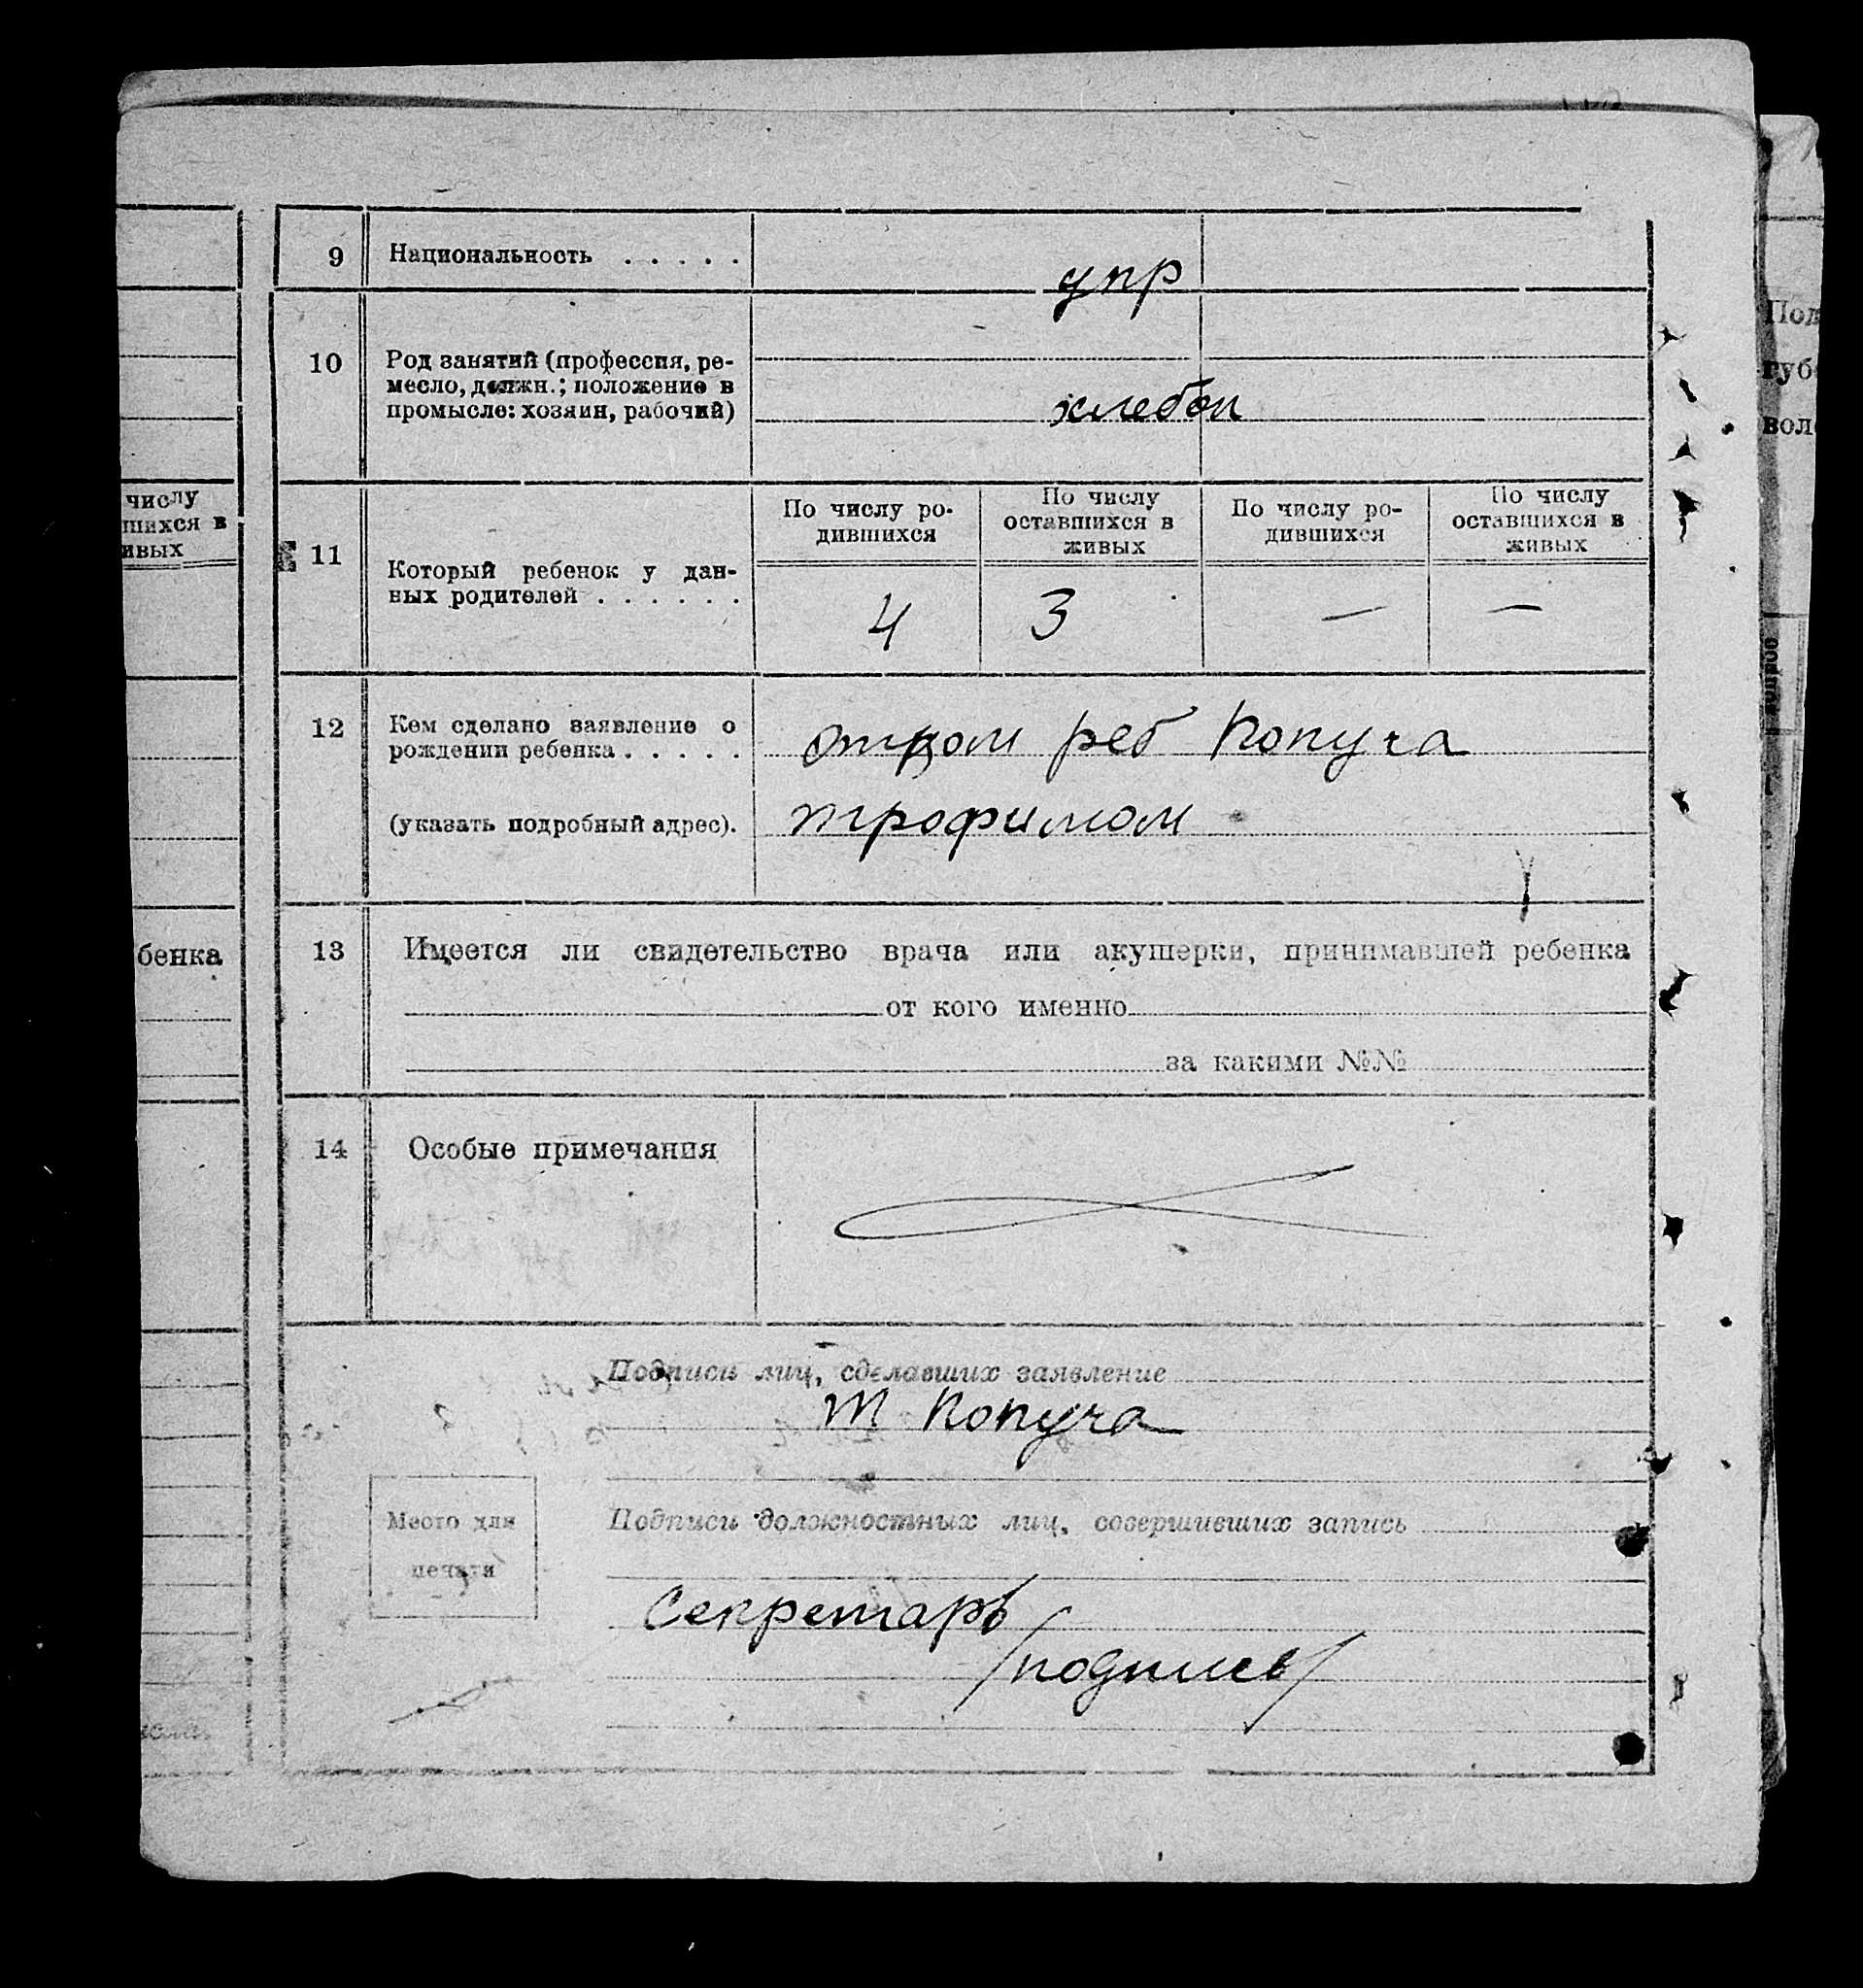 9 Национальность . . . . .
упр
10 Род занятий (профессия, ре-
месло, должн.; положение в
промысле: хозяин, рабочий)
хлебоп
числу
шихся в
ивых
11 Который ребенок у дан-
ных родителей . . . . . .
По числу ро-
дившихся
По числу
оставшихся в
живых
По числу ро-
дившихся
По числу
оставшихся в
живых
4 3 — —
12 Кем сделано заявление о
рождении ребенка . . . . .
(указать подробный адрес).
отцом реб Копуча
трофимом
бенка
13 Имеется ли свидетельство врача или акушерки, принимавшей ребенка
от кого именно
за какими №№
14 Особые примечания
Подписи лиц, сделавших заявление
Т Копуча
Место для
печати
Подписи должностных лиц, совершивших запись
Секретарь
/подпись/
Под
губе
вол